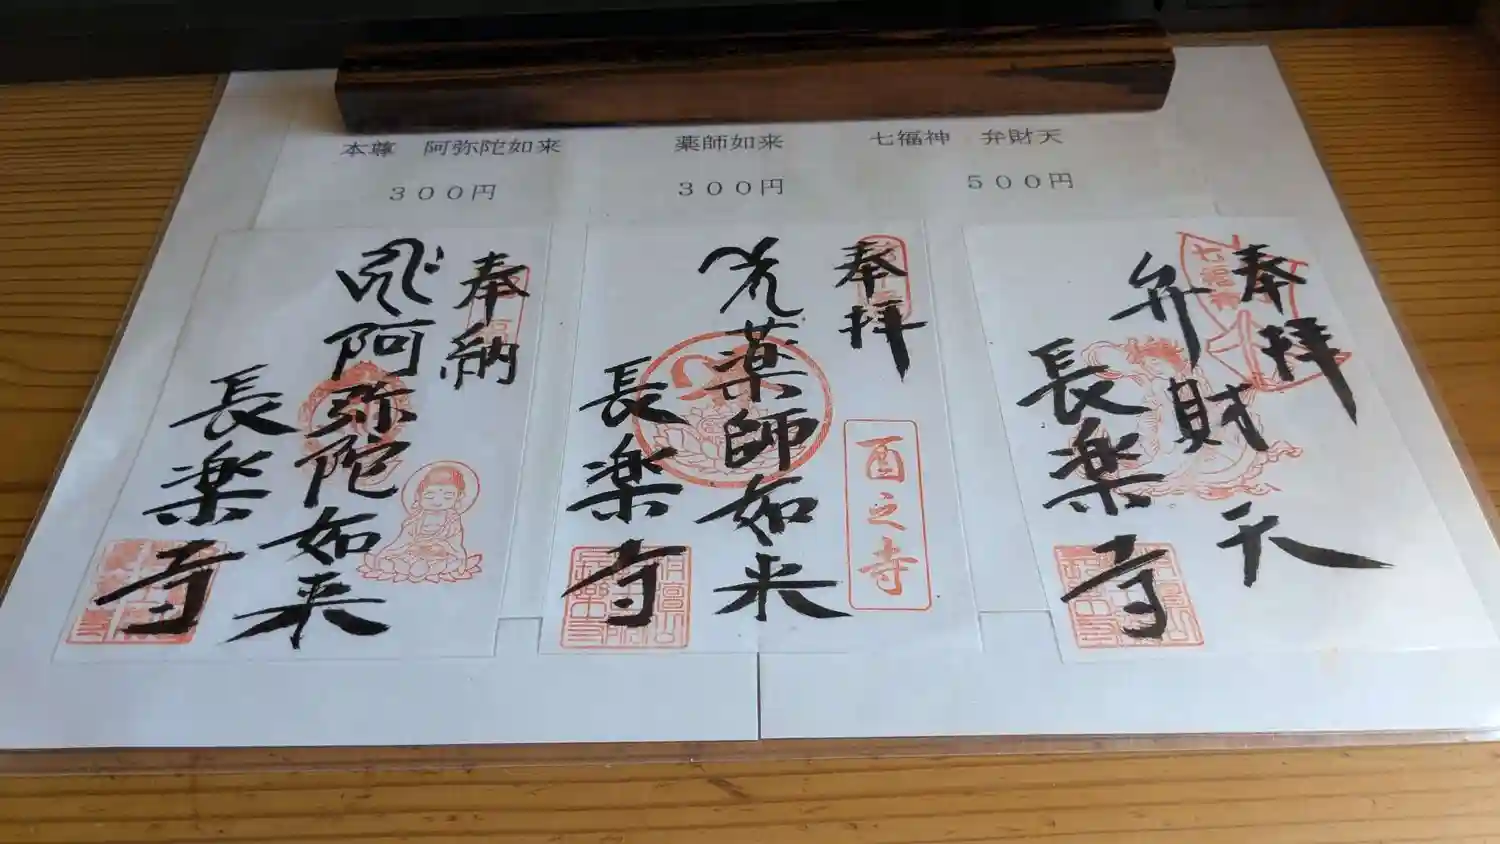 本尊　阿弥陀如来
３００円
薬師如来
３００円
七福神　弁財天
５００円
奉納
阿弥陀如来
長楽寺
奉拝
薬師如来
長楽寺
酉之寺
奉拝
七福神
弁財天
長楽寺